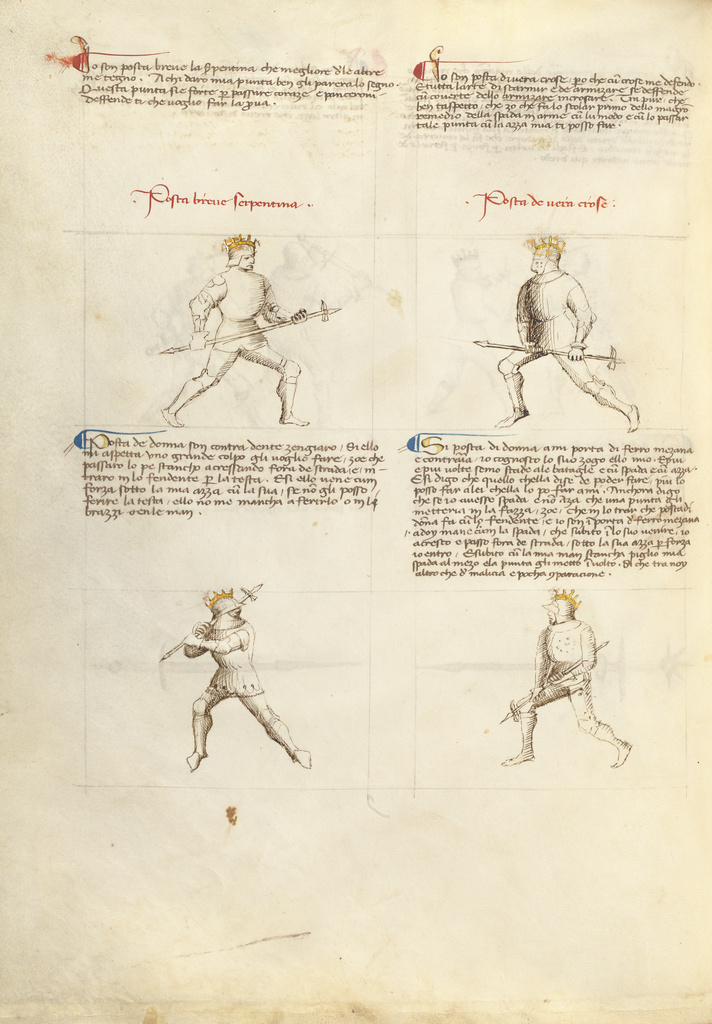 Io son posta breve la serpentina che megliore de le altre
me tegno. A chi daro mia punta ben gli parera lo segno.
Questa punta si e forte per passare coraze e panceroni
deffende ti che voglio far la prova.
Posta breve serpentina.
Io son posta di vera crose, po che cum crose me defendo.
E tutta larte di scarmir e de armizare se deffende
cum coverte dello armizare incrosare. Tra pur, che
ben taspetto, che zo che fa lo scolar primo dello magistro
remedio della spada in arme cum lo modo e cum lo passar
tale punta cum la azza mia ti posso far.
Posta de vera crose:
Posta de donna son contra dente zengiaro, Si ello
mi aspetta uno grande colpo gli voglio fare, zoe che
passaro lo pe stancho acressando fora de strada, e in-
traro in lo fendente per la testa. E si ello vene cum
forza sotto la mia azza cum la sua, se non gli posso
ferire la testa, ello no me mancha a ferirlo o in li
brazzi o en le man.
Si posta di donna a mi porta di ferro mezana
e contraria, io cognosco lo suo zogo e llo mio. E piu
e piu volte semo stade ale bataglie e cum spada e cum azza.
E si digo che quello chella dise de poder fare, piu lo
posso far a lei chella lo po far a mi. Anchora digo
che se io avesse spada e no aza che una punta gli
metteria in la fazza, zoe, Che in lo trar che posta di
dona fa cum lo fendente, e io son in porta di ferro mezana
a doy mane cum la spada, che subito in lo suo venire, io
acresco e passo fora de strada, sotto la sua azza per forza
io entro, E subito cum la mia man stancha piglio mia
spada al mezo e la punta gli metto in volto. Si che tra noy
altro che de malicia e pocha comparacione.